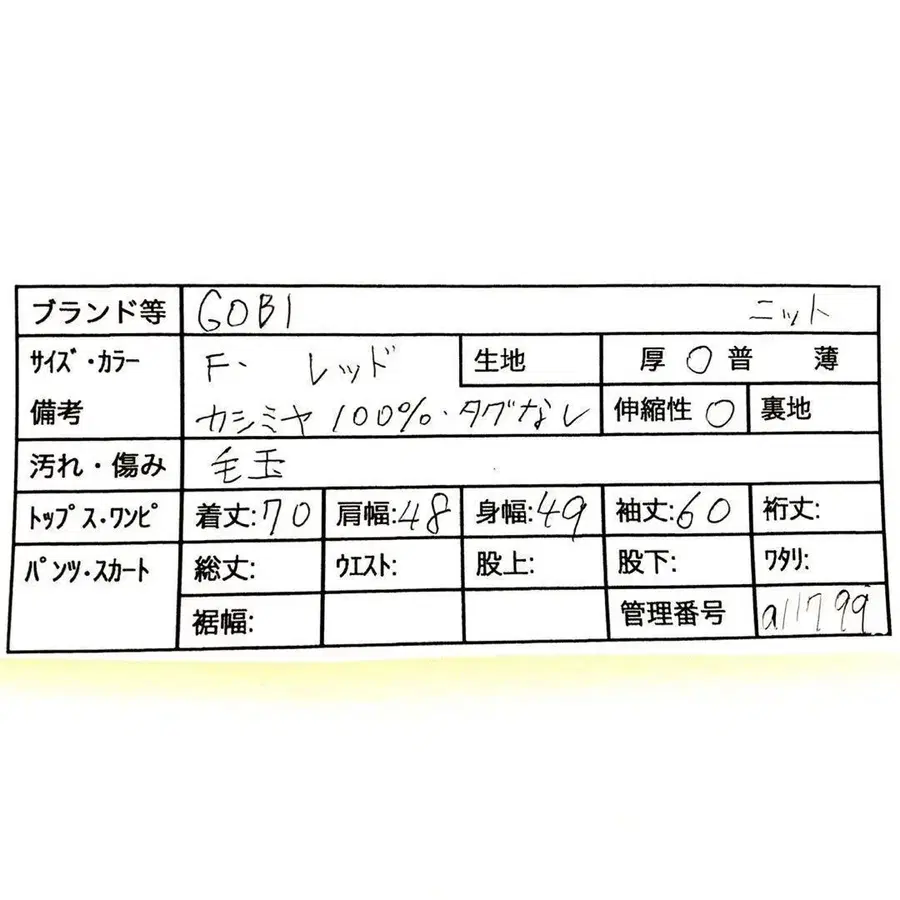 ブランド等 GOBI ニット
サイズ・カラー F. レッド 生地 厚 〇 普 薄
備考 カシミヤ 100%.タグなし 伸縮性 〇 裏地
汚れ・傷み 毛玉
トップス・ワンピ 着丈:70 肩幅:48 身幅:49 袖丈:60 裄丈:
パンツ・スカート 総丈: ウエスト: 股上: 股下: ワタリ:
裾幅: 管理番号 a11799